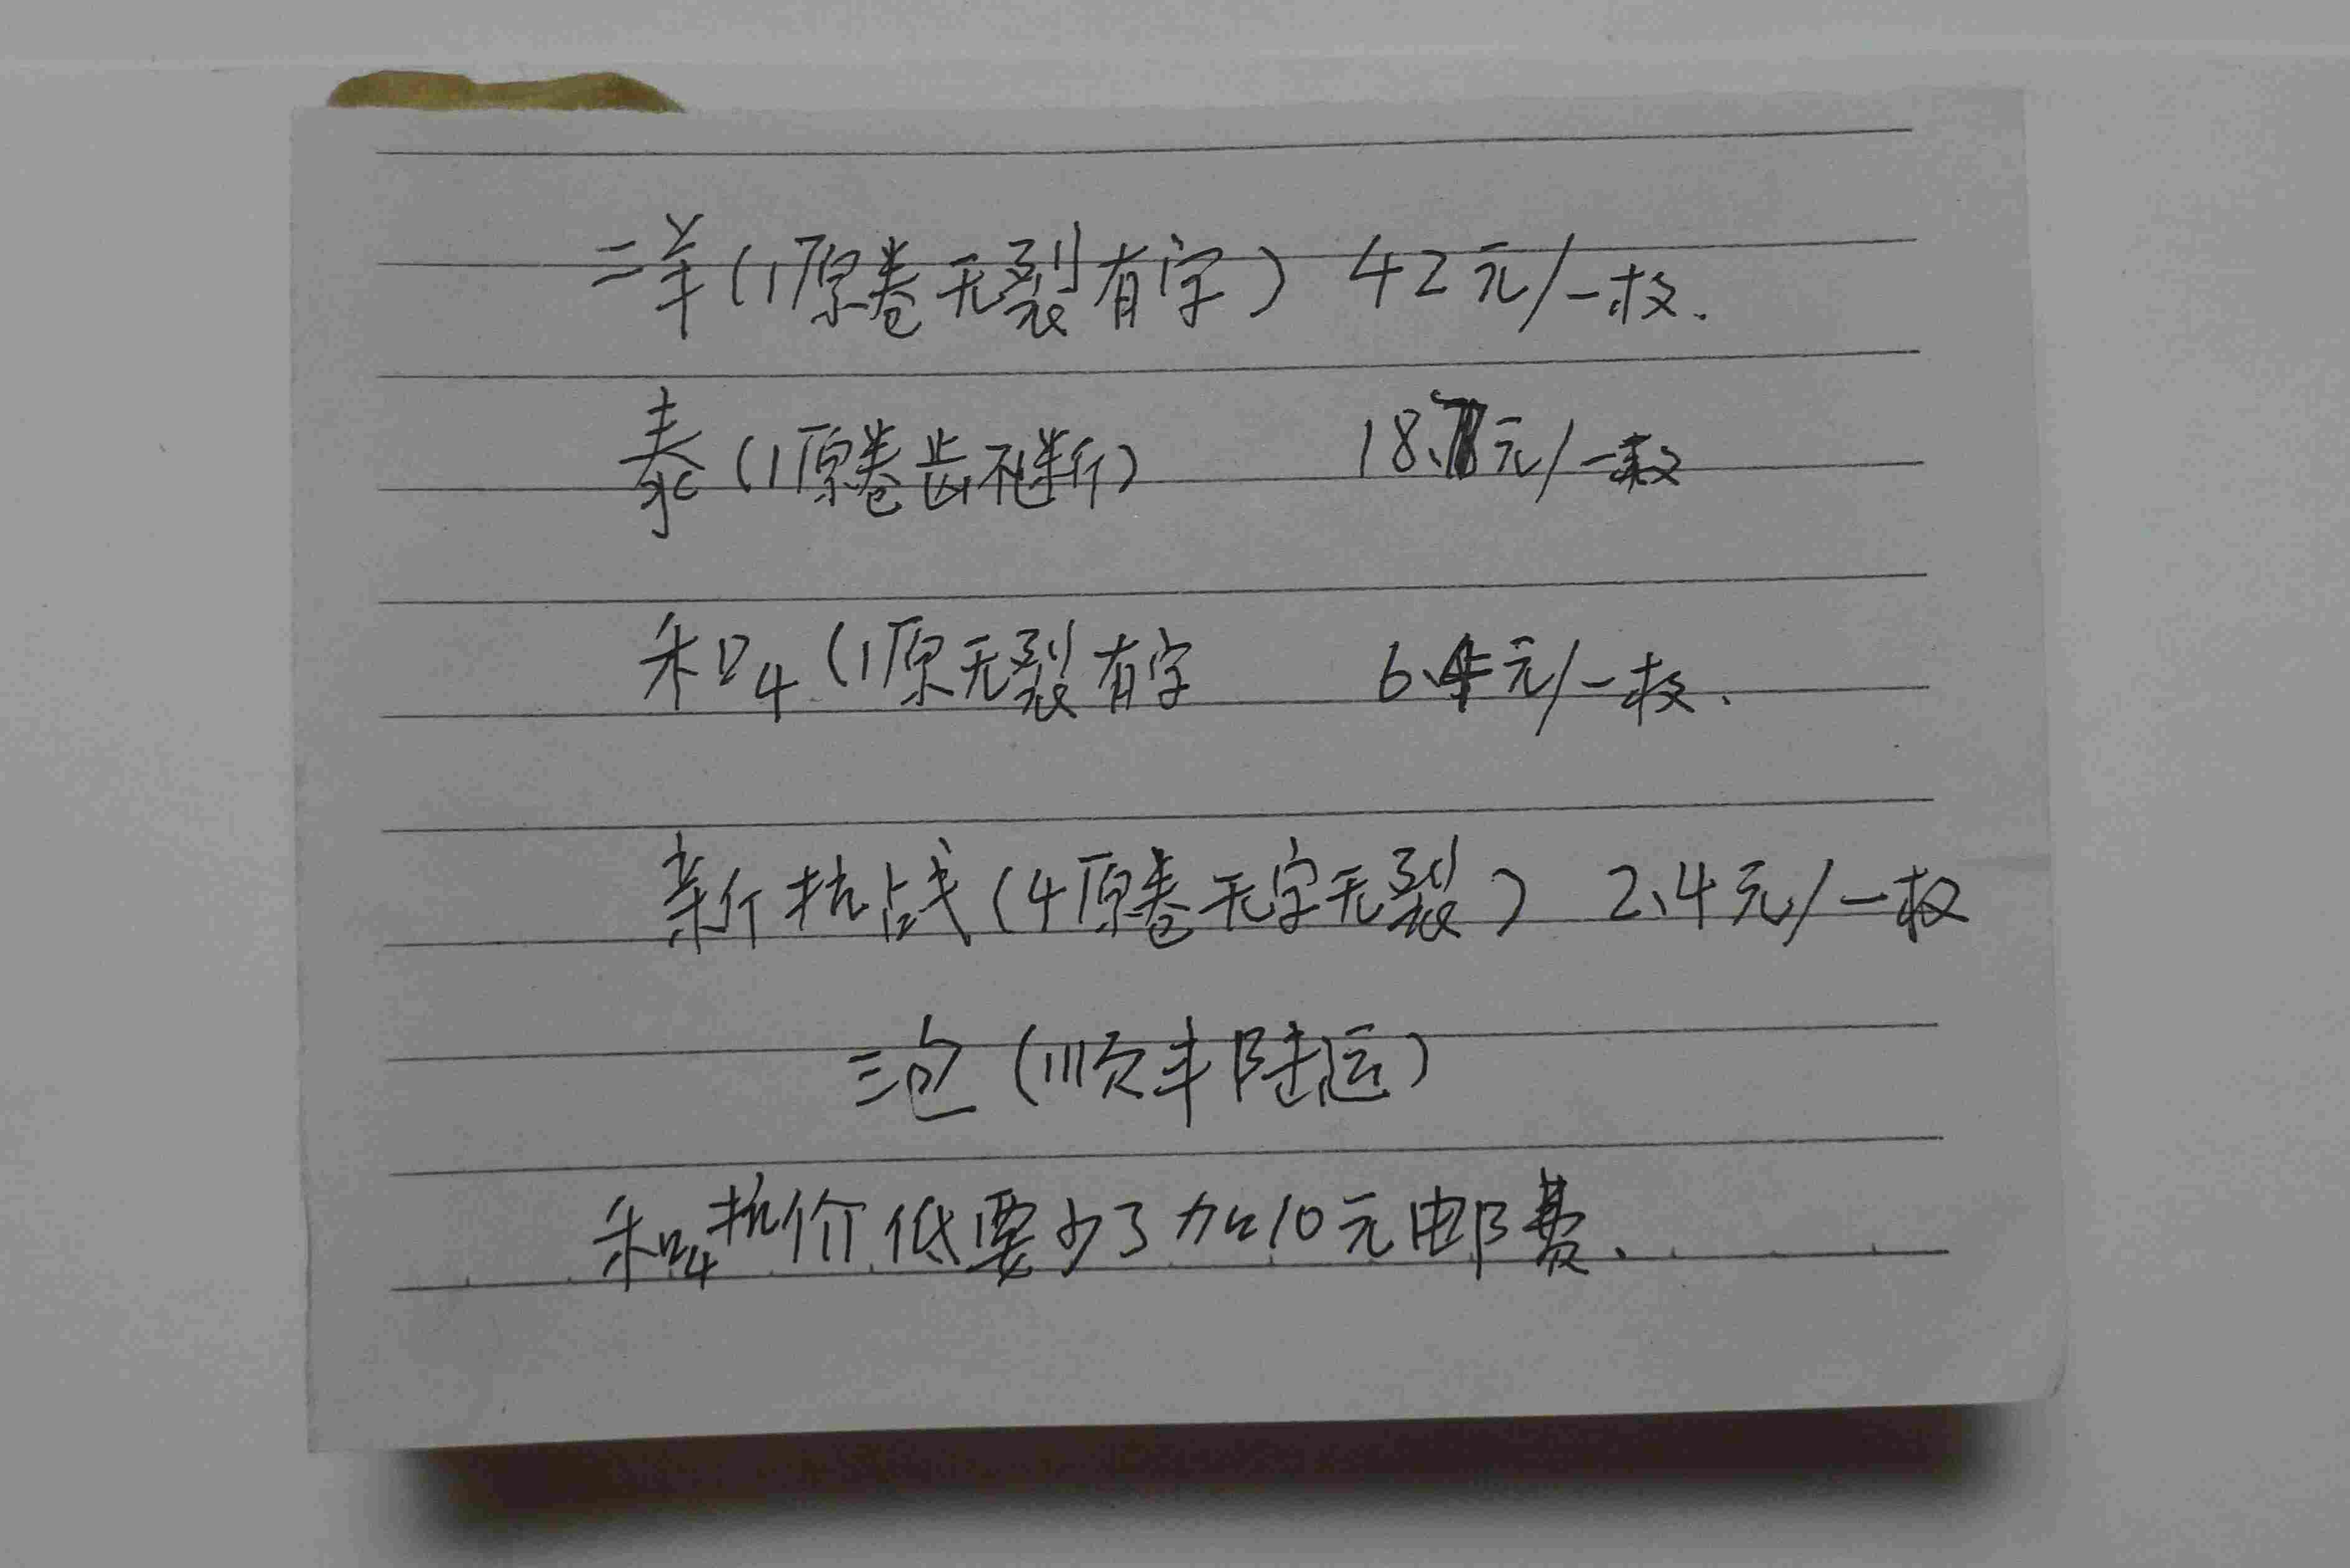 二羊(1原卷无裂有字) 42元/一枚.
泰(1原卷齿不断) 18.元/一枚
和4(1原无裂有字 6.4元/一枚.
新抗战(4原卷无字无裂) 2.4元/一枚
三包(顺丰陆运)
和4抗价低要少了加10元邮费.